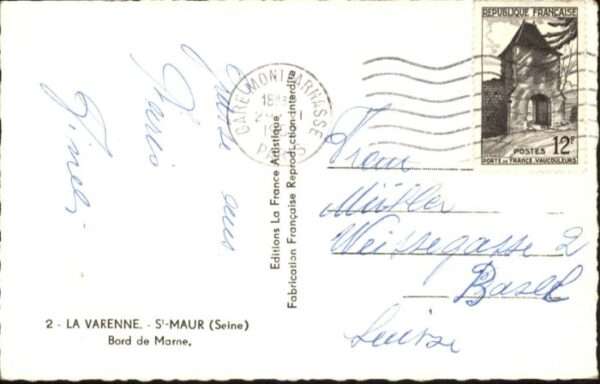 Grüsse aus
Paris
2 - LA VARENNE. - St-MAUR (Seine)
Bord de Marne.
Editions La France Artistique
Fabrication Française Reproduction interdite
GARE MONTPARNASSE
PARIS
REPUBLIQUE FRANÇAISE
POSTES 12F
PORTE DE FRANCE VAUCOULEURS
Frau
Weissegasse 2
Basel
Suisse